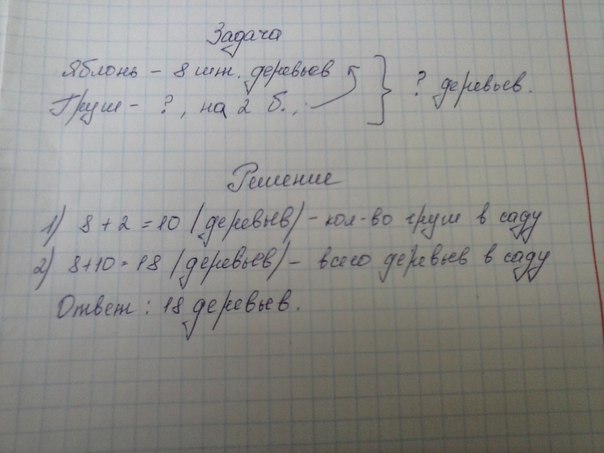 Задача
Яблонь - 8 шт. деревьев
Груш - ?, на 2 б.,
} ? деревьев.
Решение
1) 8 + 2 = 10 (деревьев) - кол-во груш в саду
2) 8+10 = 18 (деревьев) - всего деревьев в саду
Ответ: 18 деревьев.